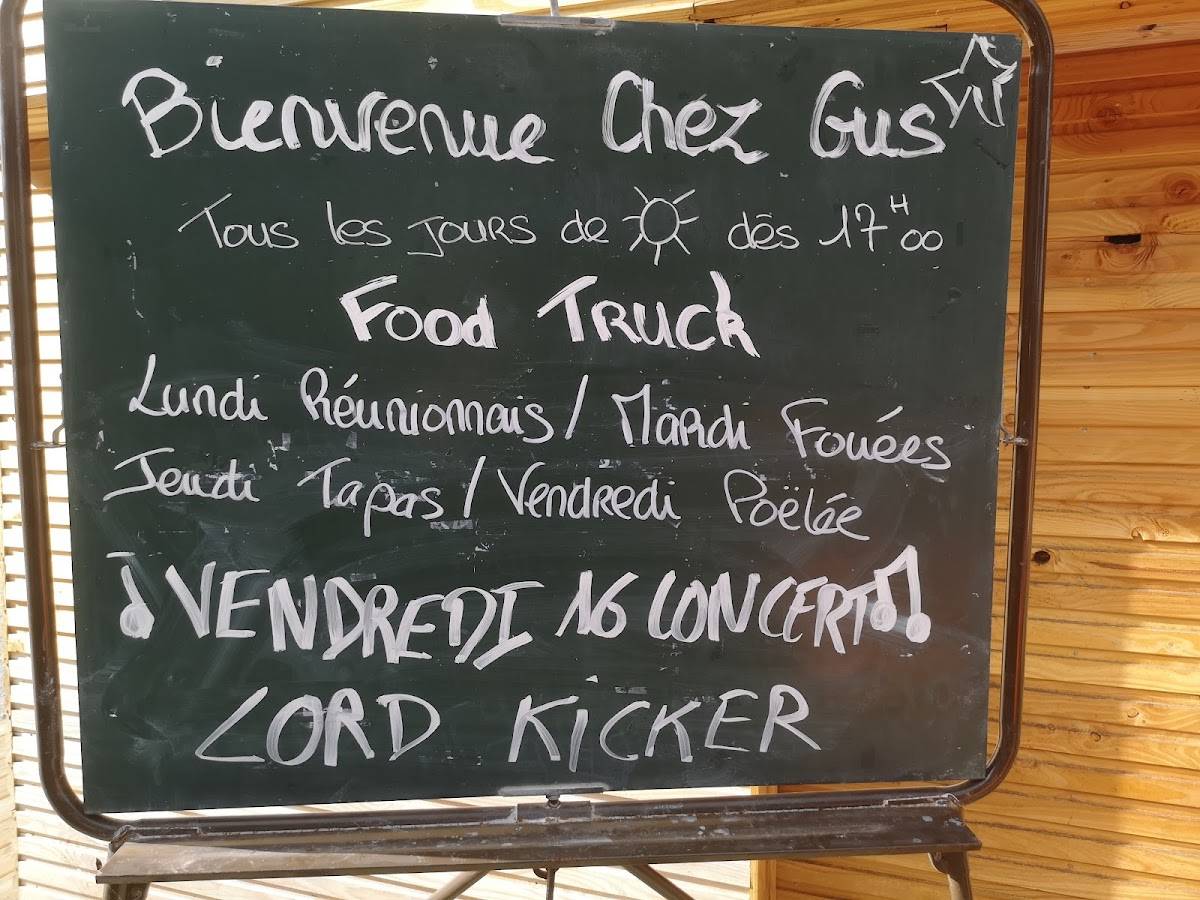 Bienvenue Chez Gus
Tous les jours de dès 17H00
Food Truck
Lundi Réunionnais / Mardi Fouées
Jeudi Tapas / Vendredi Poëlée
VENDREDI 16 CONCERT
LORD KICKER